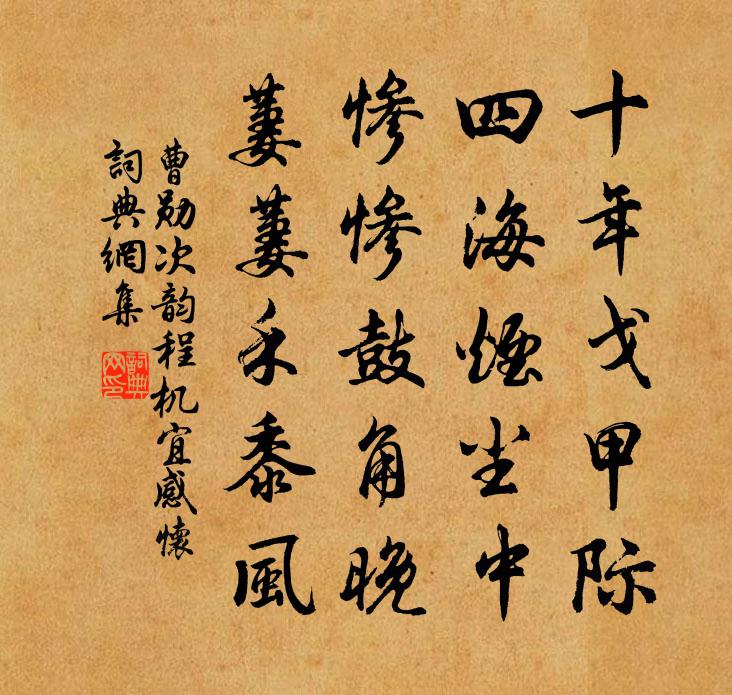 十年戈甲际
四海煙尘中
惨惨鼓角晚
萋萋禾黍風
曹勋次韵程机宜感懷
詞典網集
詞典网印